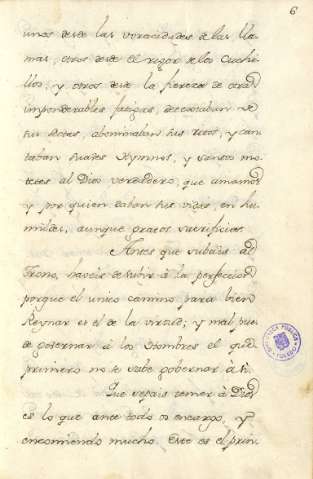 6
unos desde las voracidades de las lla-
mas, otros desde el rigor de los Cuchi-
llos, y otros desde la fiereza de otras
imponderables fatigas, detestaban de
sus sectas, abominaban sus ritos, y can-
taban suaves Hymnos, y sonoros mo-
tetes al Dios verdadero, que amamos
y por quien daban sus vidas, en hu-
mildes, aunque gratos sacrificios.
Antes que subais al
Trono, haveis de subir à la perfeccion
porque el unico camino para bien
Reynar es el de la virtud; y mal pue-
de governar à los Hombres el que
primero no se sabe governar à si.
Que sepais temer à Dios
es lo que ante todo os encargo, y
encomiendo mucho. Este es el prin-
BIBLIOTECA PUBLICA
TOLEDO